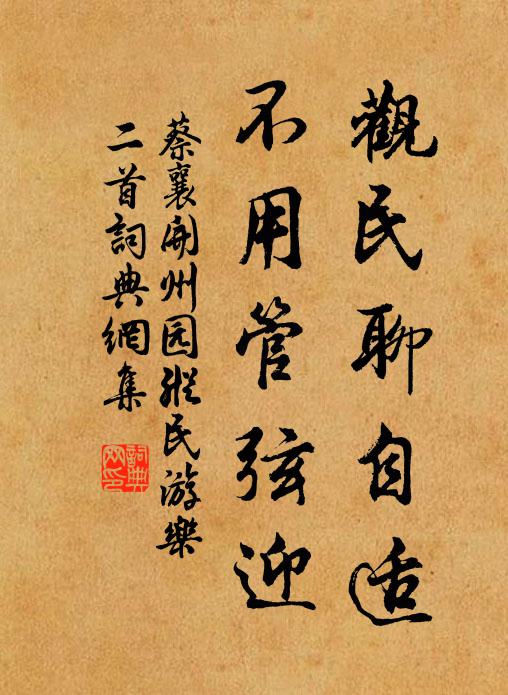 觀民聊自适
不用管弦迎
蔡襄開州园纵民游樂
二首詞典網集
詞典
网印